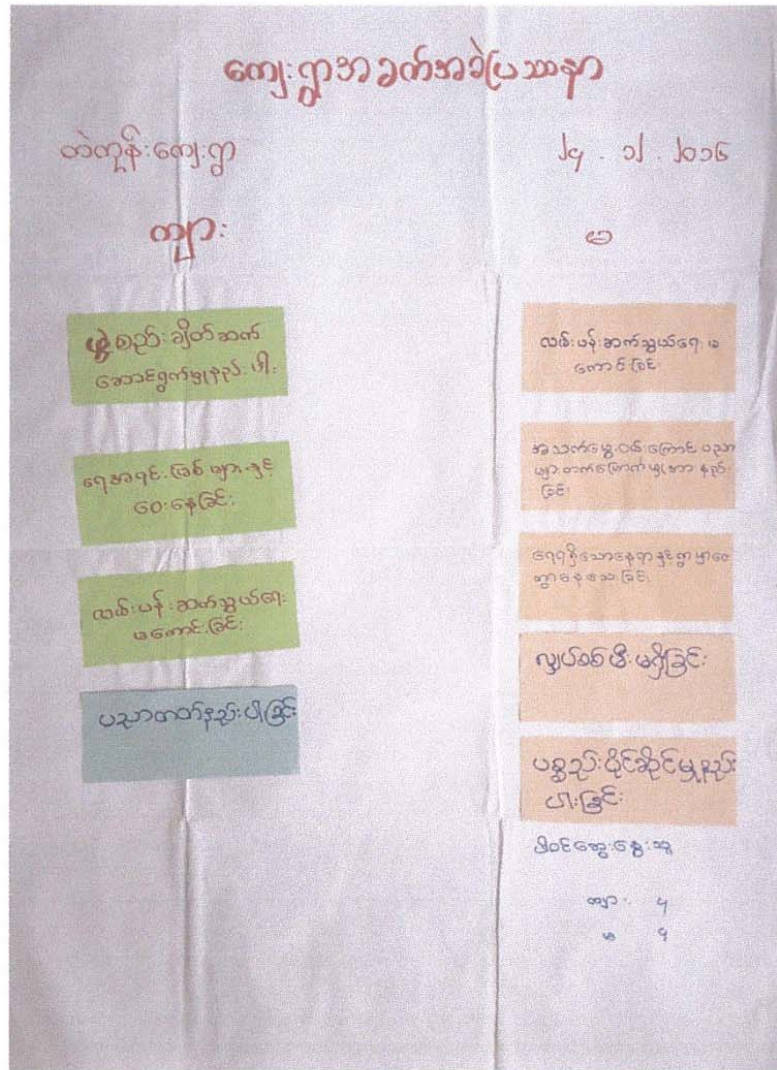 ကျေးရွာအခက်အခဲပြဿနာ
တဲကုန်းကျေးရွာ
၂၄.၁၂.၂၀၁၆
ကျား
မ
ဖွဲ့စည်းချိတ်ဆက်
ဆောင်ရွက်မှုနည်းပါး
ရေအရင်းမြစ်များနှင့်
ဝေးနေခြင်း
လမ်းပန်းဆက်သွယ်ရေး
မကောင်းခြင်း
ပညာတတ်နည်းပါးခြင်း
လမ်းပန်းဆက်သွယ်ရေးမ
ကောင်းခြင်း
အသက်မွေးဝမ်းကြောင်းပညာ
များတတ်မြောက်မှုအားနည်း
ခြင်း
ရေရရှိသောနေရာနှင့်ရွာမှာဝေး
ကွာနေသောခြင်း
လျှပ်စစ်မီးမရှိခြင်း
ပစ္စည်းပိုင်ဆိုင်မှုနည်း
ပါးခြင်း
ပါဝင်ဆွေးနွေးသူ
ကျား ၅
မ ၄